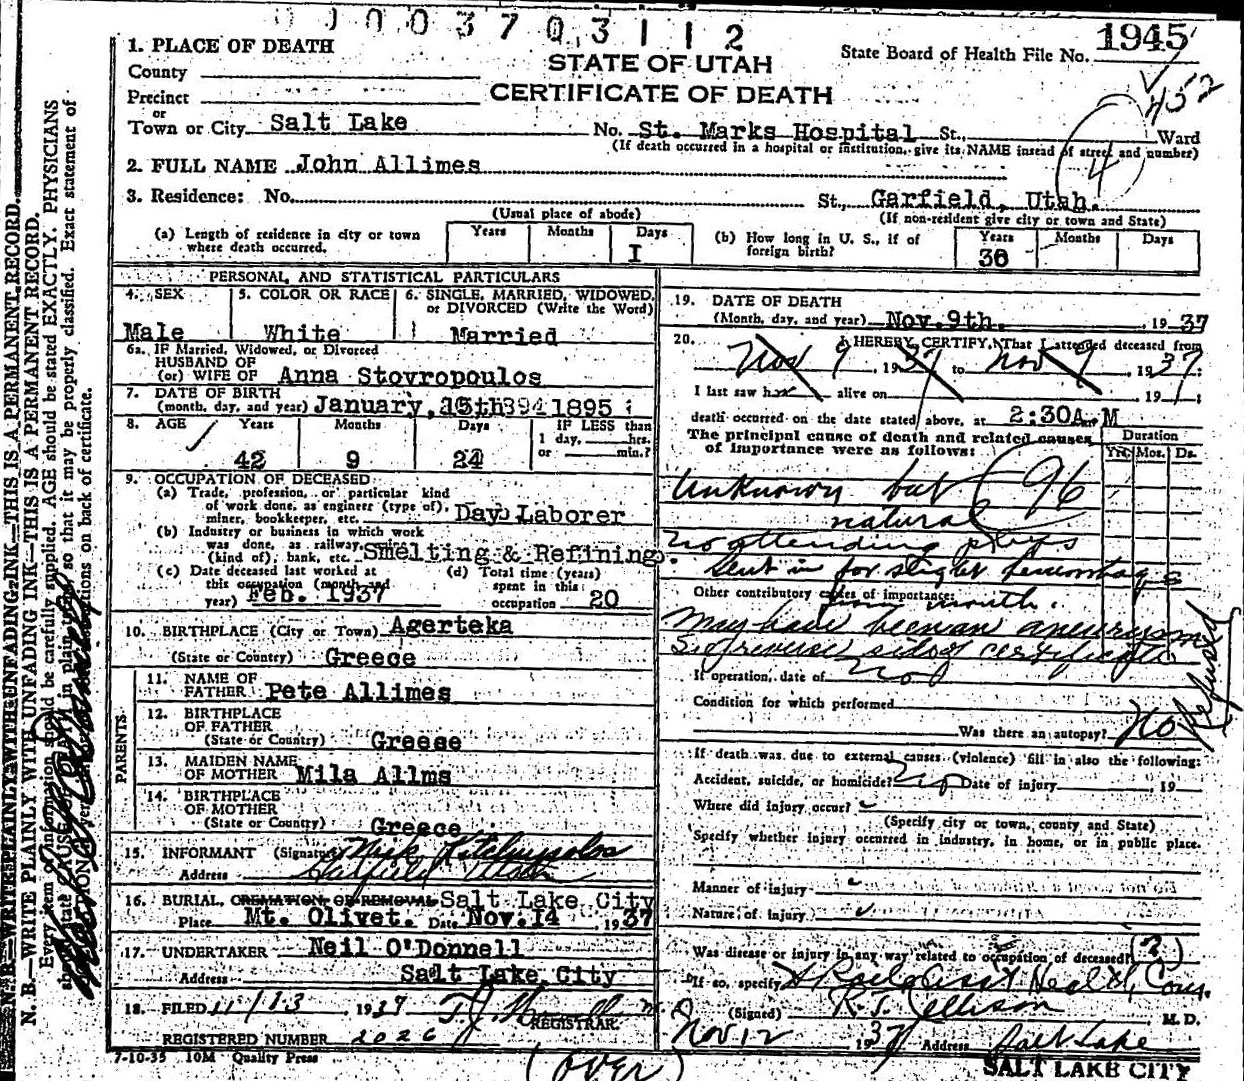 0 0 0 0 3 7 0 3 1 1 2
1. PLACE OF DEATH
STATE OF UTAH
State Board of Health File No. 1945
County
CERTIFICATE OF DEATH
452
Precinct
or
Town or City Salt Lake No. St. Marks Hospital St., Ward
(If death occurred in a hospital or institution, give its NAME insead of street and number)
4
2. FULL NAME John Allimes
3. Residence: No. St., Garfield, Utah.
(Usual place of abode) (If non-resident give city or town and State)
(a) Length of residence in city or town where death occurred. Years Months Days I
(b) How long in U. S., if of foreign birth? Years 36 Months Days
PERSONAL AND STATISTICAL PARTICULARS
4. SEX Male
5. COLOR OR RACE White
6. SINGLE, MARRIED, WIDOWED, or DIVORCED (Write the Word) Married
6a. IF Married, Widowed, or Divorced
HUSBAND OF
(or) WIFE OF Anna Stovropoulos
7. DATE OF BIRTH
(month, day, and year) January, 15th 1895
8. AGE Years 42 Months 9 Days 24
IF LESS than
1 day, hrs.
or min.?
9. OCCUPATION OF DECEASED
(a) Trade, profession, or particular kind
of work done, as engineer (type of),
miner, bookkeeper, etc. Day Laborer
(b) Industry or business in which work
was done, as railway, mine
(kind of), bank, etc. Smelting & Refining
(c) Date deceased last worked at
this occupation (month and
year) Feb. 1937
(d) Total time (years)
spent in this
occupation 20
10. BIRTHPLACE (City or Town) Agerteka
(State or Country) Greece
PARENTS
11. NAME OF
FATHER Pete Allimes
12. BIRTHPLACE
OF FATHER
(State or Country) Greese
13. MAIDEN NAME
OF MOTHER Mila Allms
14. BIRTHPLACE
OF MOTHER
(State or Country) Greece
15. INFORMANT (Signature) Nick
Address Garfield Utah
16. BURIAL, CREMATION, OR REMOVAL Salt Lake City
Place Mt. Olivet. Date Nov. 14, 1937
17. UNDERTAKER Neil O'Donnell
Address Salt Lake City
18. FILED 11/13 1937
REGISTRAR
REGISTERED NUMBER 2026
7-10-35 10M Quality Press
(over)
19. DATE OF DEATH
(Month, day, and year) Nov. 9th. , 1937
20. I HEREBY CERTIFY, That I attended deceased from
Nov 9, 1937 to Nov 9, 1937:
I last saw h alive on , 19 ;
death occurred on the date stated above, at 2:30A. M
The principal cause of death and related causes of importance were as follows:
Duration
Yrs. Mos. Ds.
Unknown but 96
natural
no attending phys
Sent in for slight hemorrhage
Other contributory causes of importance:
from mouth.
May have been an aneurysm
See reverse side of certificate
If operation, date of No
Condition for which performed
Was there an autopsy? No Refused
If death was due to external causes (violence) fill in also the following:
Accident, suicide, or homicide? No Date of injury , 19
Where did injury occur?
(Specify city or town, county and State)
Specify whether injury occurred in industry, in home, or in public place.
Manner of injury
Nature of injury
Was disease or injury in any way related to occupation of deceased? (?)
If so, specify Asst Health Com.
(Signed) R.T. Jellison M. D.
Nov 12 1937 Address Salt Lake
SALT LAKE CITY
N. B.—WRITE PLAINLY WITH UNFADING INK—THIS IS A PERMANENT RECORD.
N. B.—WRITE PLAINLY WITH UNFADING INK—THIS IS A PERMANENT RECORD.
Every item of information should be carefully supplied. AGE should be stated EXACTLY. PHYSICIANS
should state CAUSE OF DEATH in plain terms, so that it may be properly classified. Exact statement of
instructions on back of certificate.